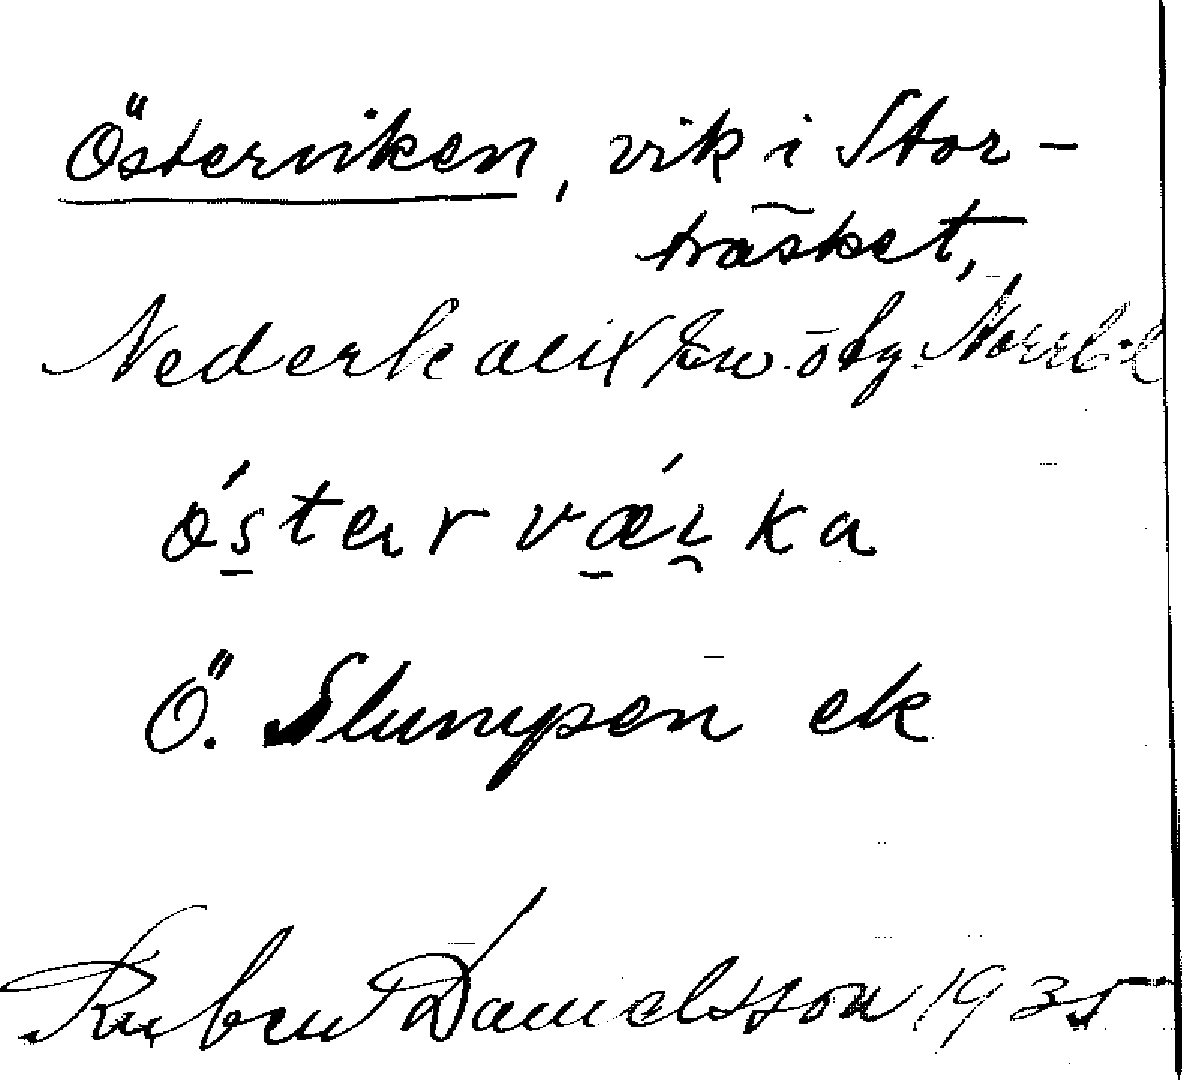 Österviken, vik i Stor-
träsket,
Nederkalix sn ö bg. Norrb. l
Ö. Slumpen ek
Ruben Danielsson 1935